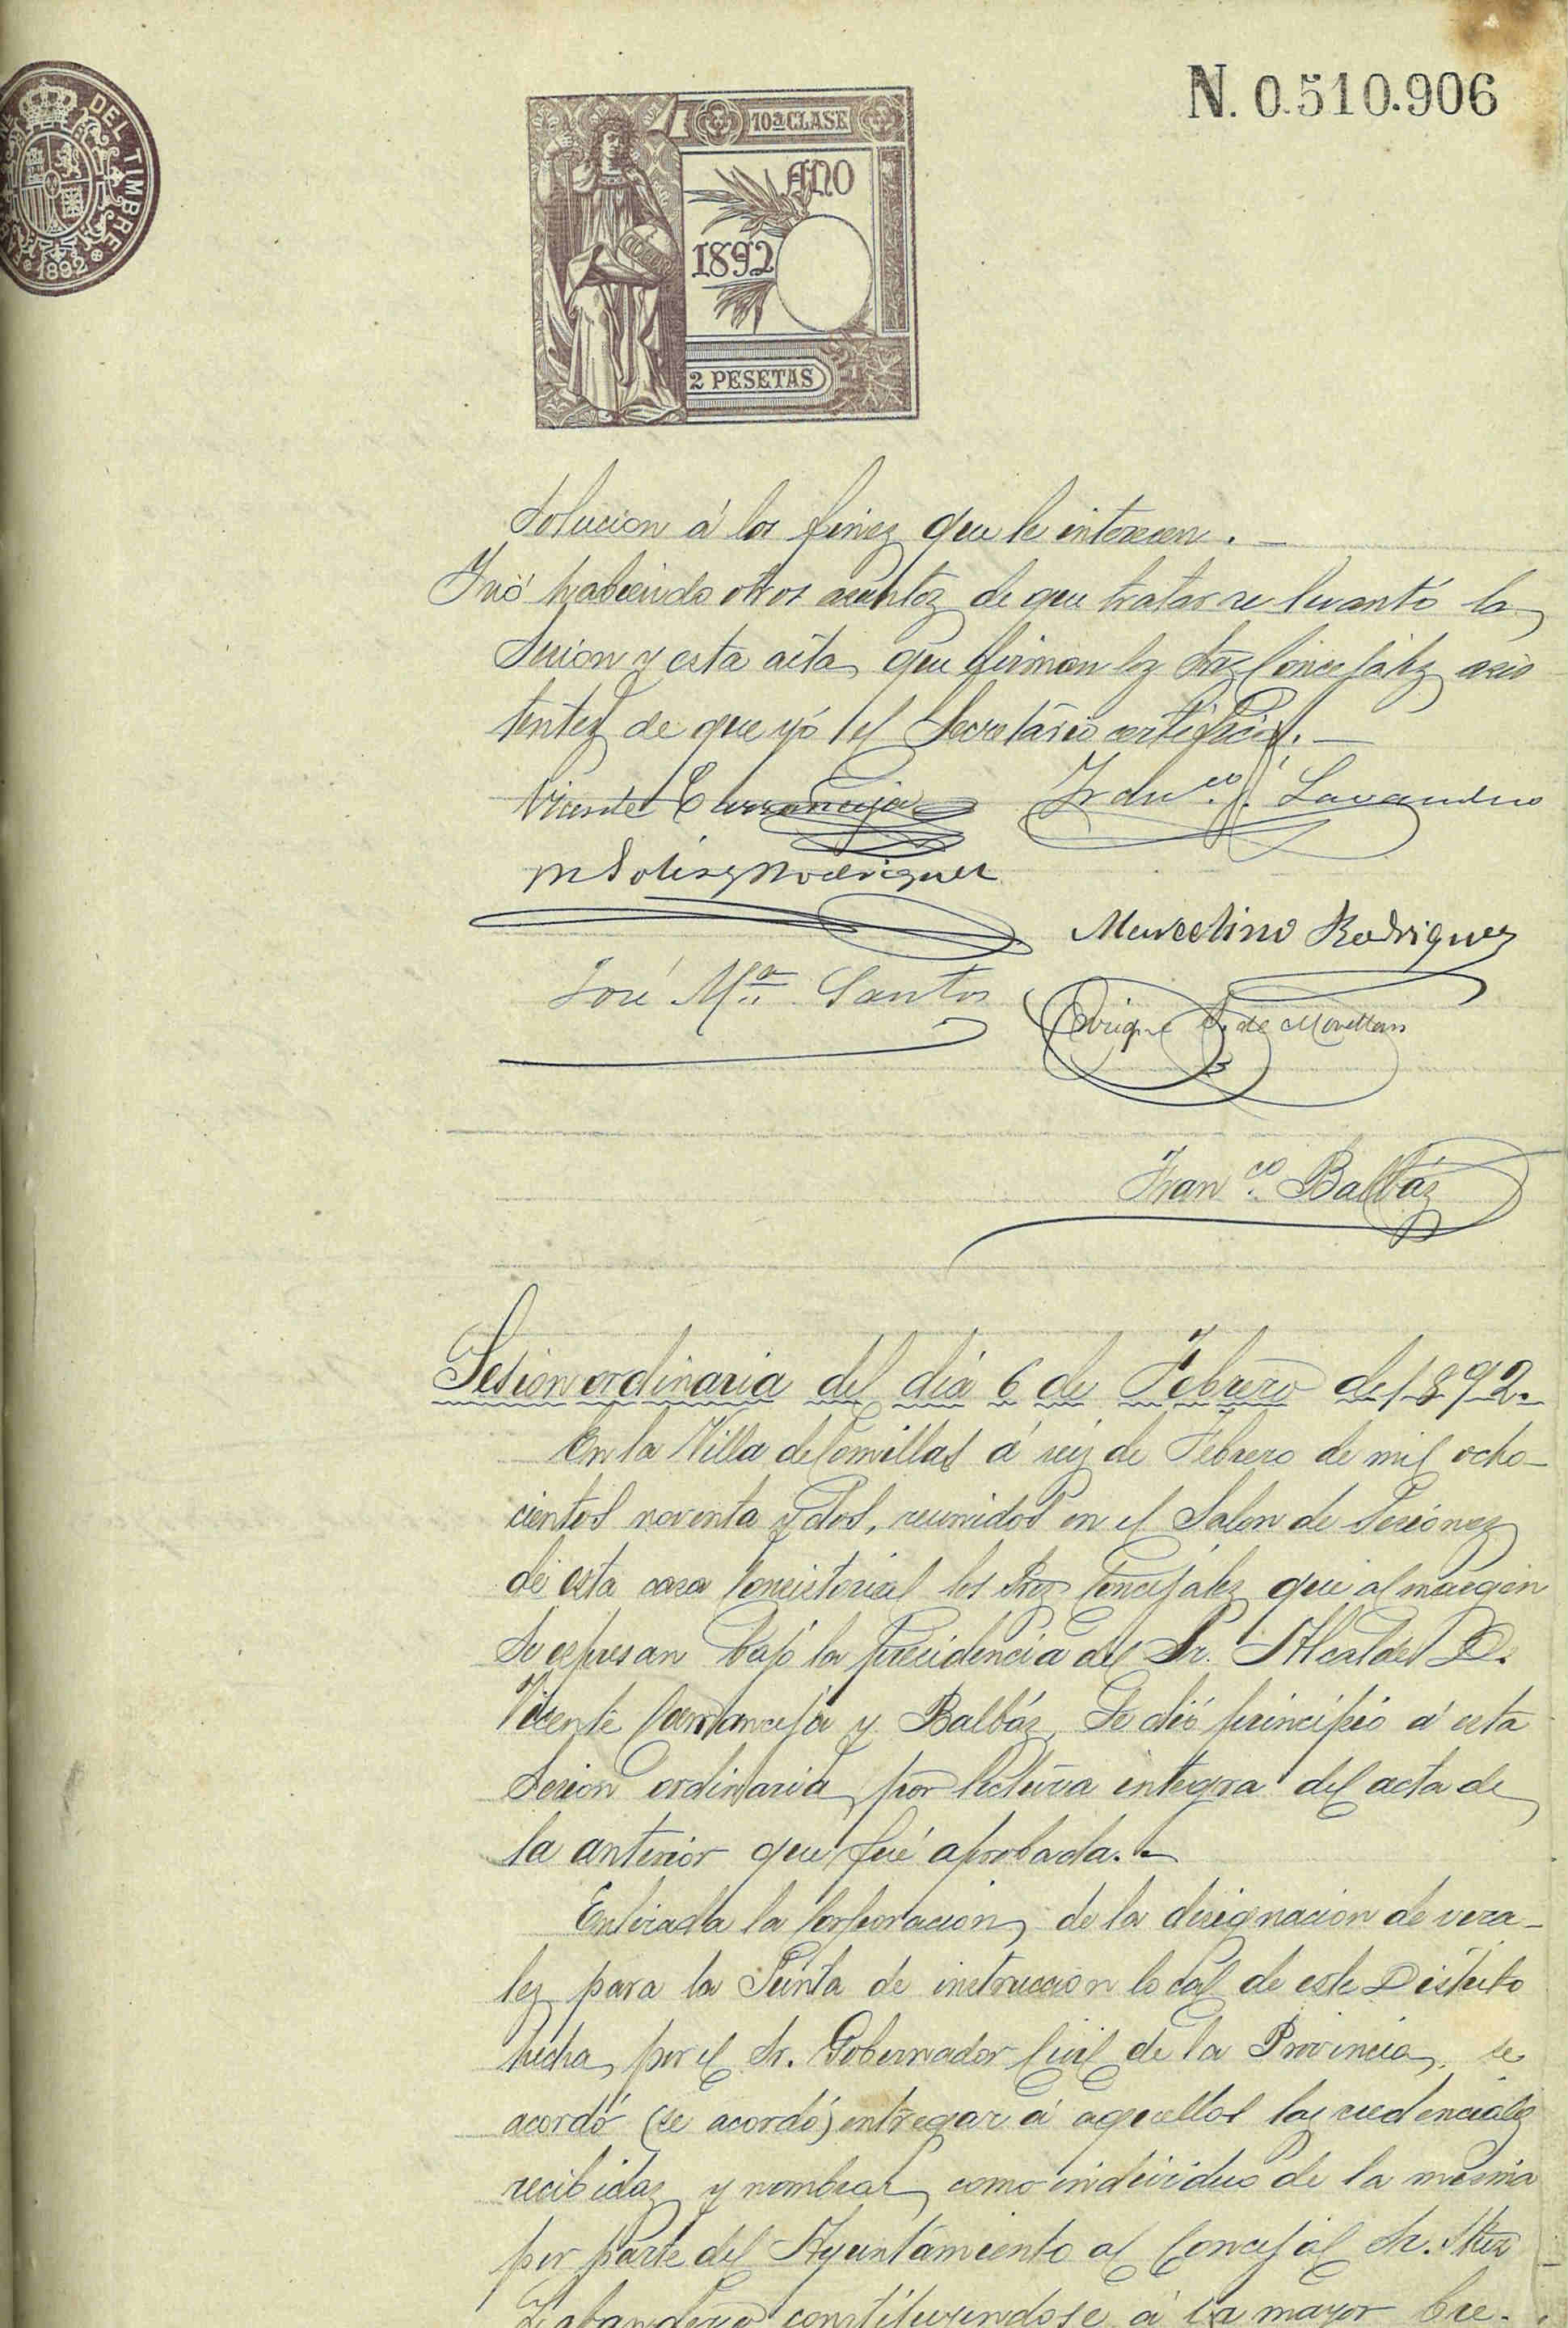 N. 0.510.906
DEL TIMBRE
1892
10ª CLASE
AÑO
1892
2 PESETAS
solucion á los finez que le interesen. —
Y nó habiendo otros asuntoz de que tratar se levantó la
Sesion y esta acta que firman loz Srez Concejalez asis
tentez de que yó el Secretário certifico. —
Vicente Carranceja Franco. Lavandero
M Solis y Rodriguez
Marcelino Rodriguez
José Mª. Santos
Enrique de Movellan
Franco. Balbáz
Sesion ordinaria del dia 6 de Febrero de 1892.
En la Villa de Comillas á seiz de Febrero de mil ocho-
cientos noventa y dos, reunidos en el Salon de Sesionez
de esta casa Consistorial los Srez Concejalez que al margen
se espresan bajo la presidencia del Sr. Alcalde D.
Vicente Carranceja y Balbáz, Se dió principio á esta
Sesion ordinaria por lectura integra del acta de
la anterior que fué aprobada. —
Enterada la Corporacion de la designacion de voca-
lez para la Junta de instruccion local de este Distrito
hecha por el Sr. Gobernador Civil de la Provincia, se
acordó (se acordó) entregar á aquellos laz credencialez
recibidaz y nombrar como individuo de la mesma
por parte del Ayuntamiento al Concejal Sr.
Labandero constituyendose á la mayor bre-